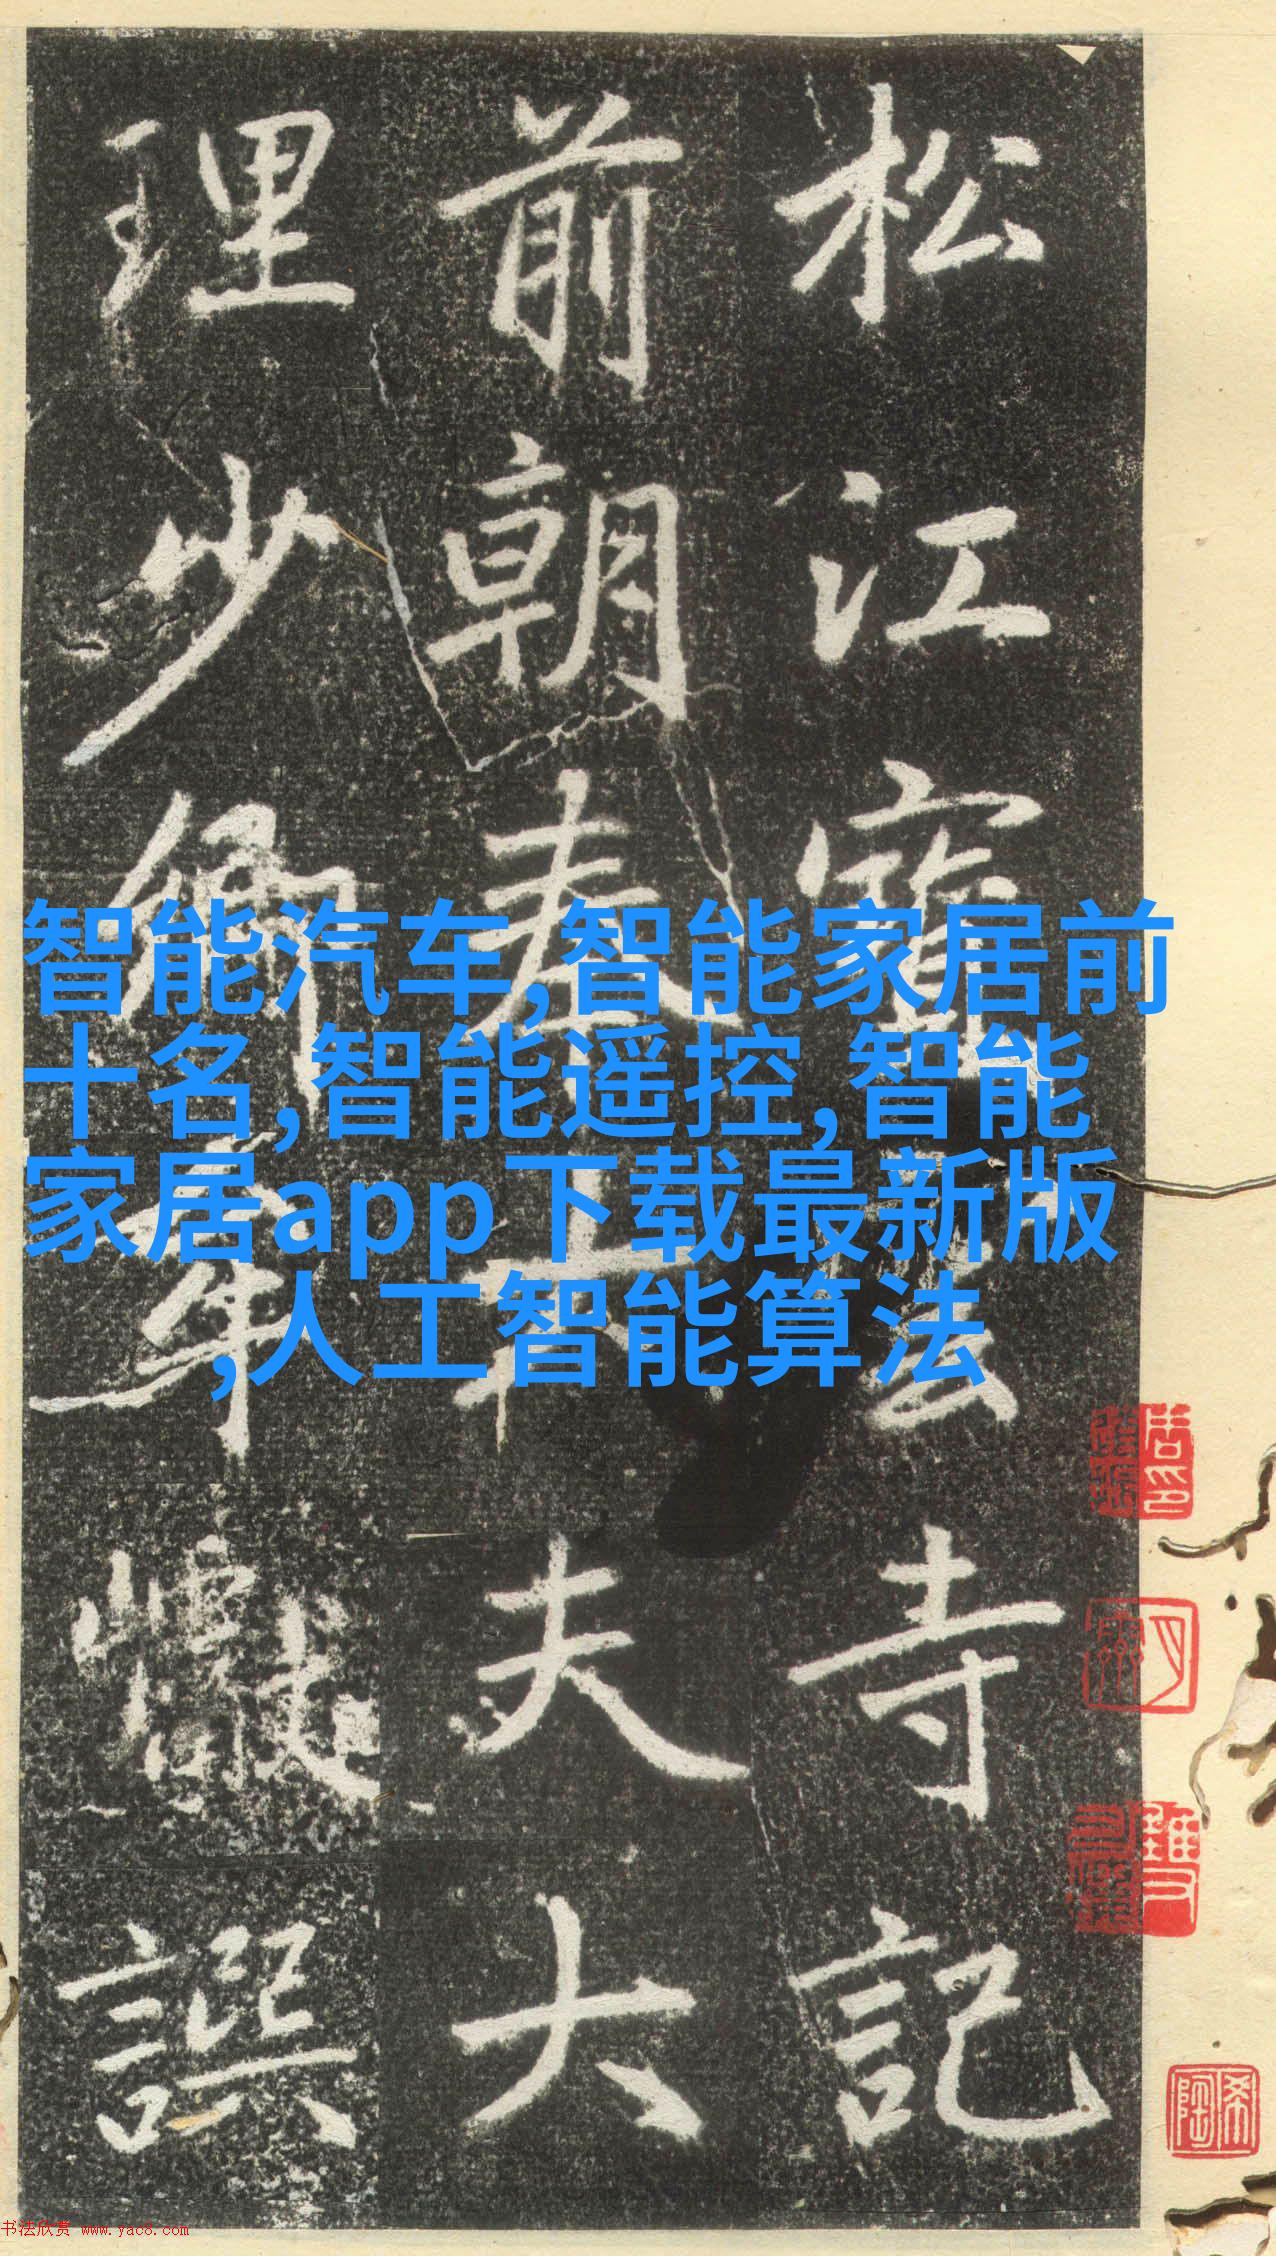 松江寶寺記
前朝奉大夫大
理少卿牟譔
智能汽车,智能家居前
十名,智能遥控,智能
家居app下载最新版
,人工智能算法
希陶
书法欣赏 www.yac8.com